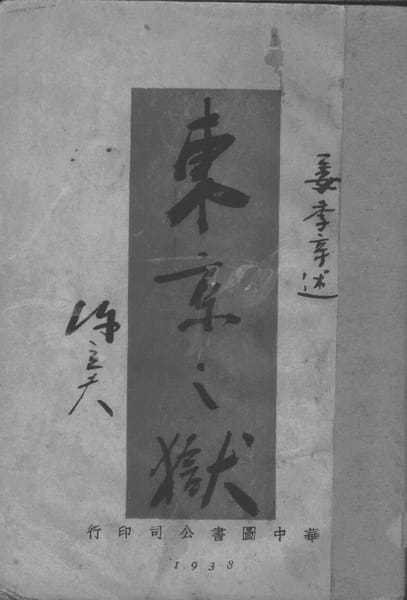 姜季辛述
東京之獄
陳立夫
華中圖書公司印行
1938